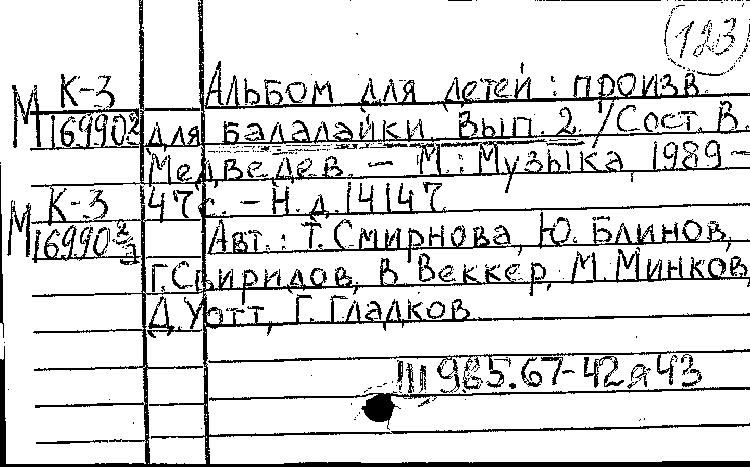 123
К-3 Альбом для детей : произв.
М 169902 для балалайки. Вып. 2 / Сост. В.
Медведев. – М. : Музыка, 1989 –
К-3 47 с. – Н. д. 14147
М 16990 Авт. : Т. Смирнова, Ю. Блинов,
Г. Свиридов, В. Веккер, М. Минков,
Д. Уотт, Г. Гладков.
Щ 985.67-42я43